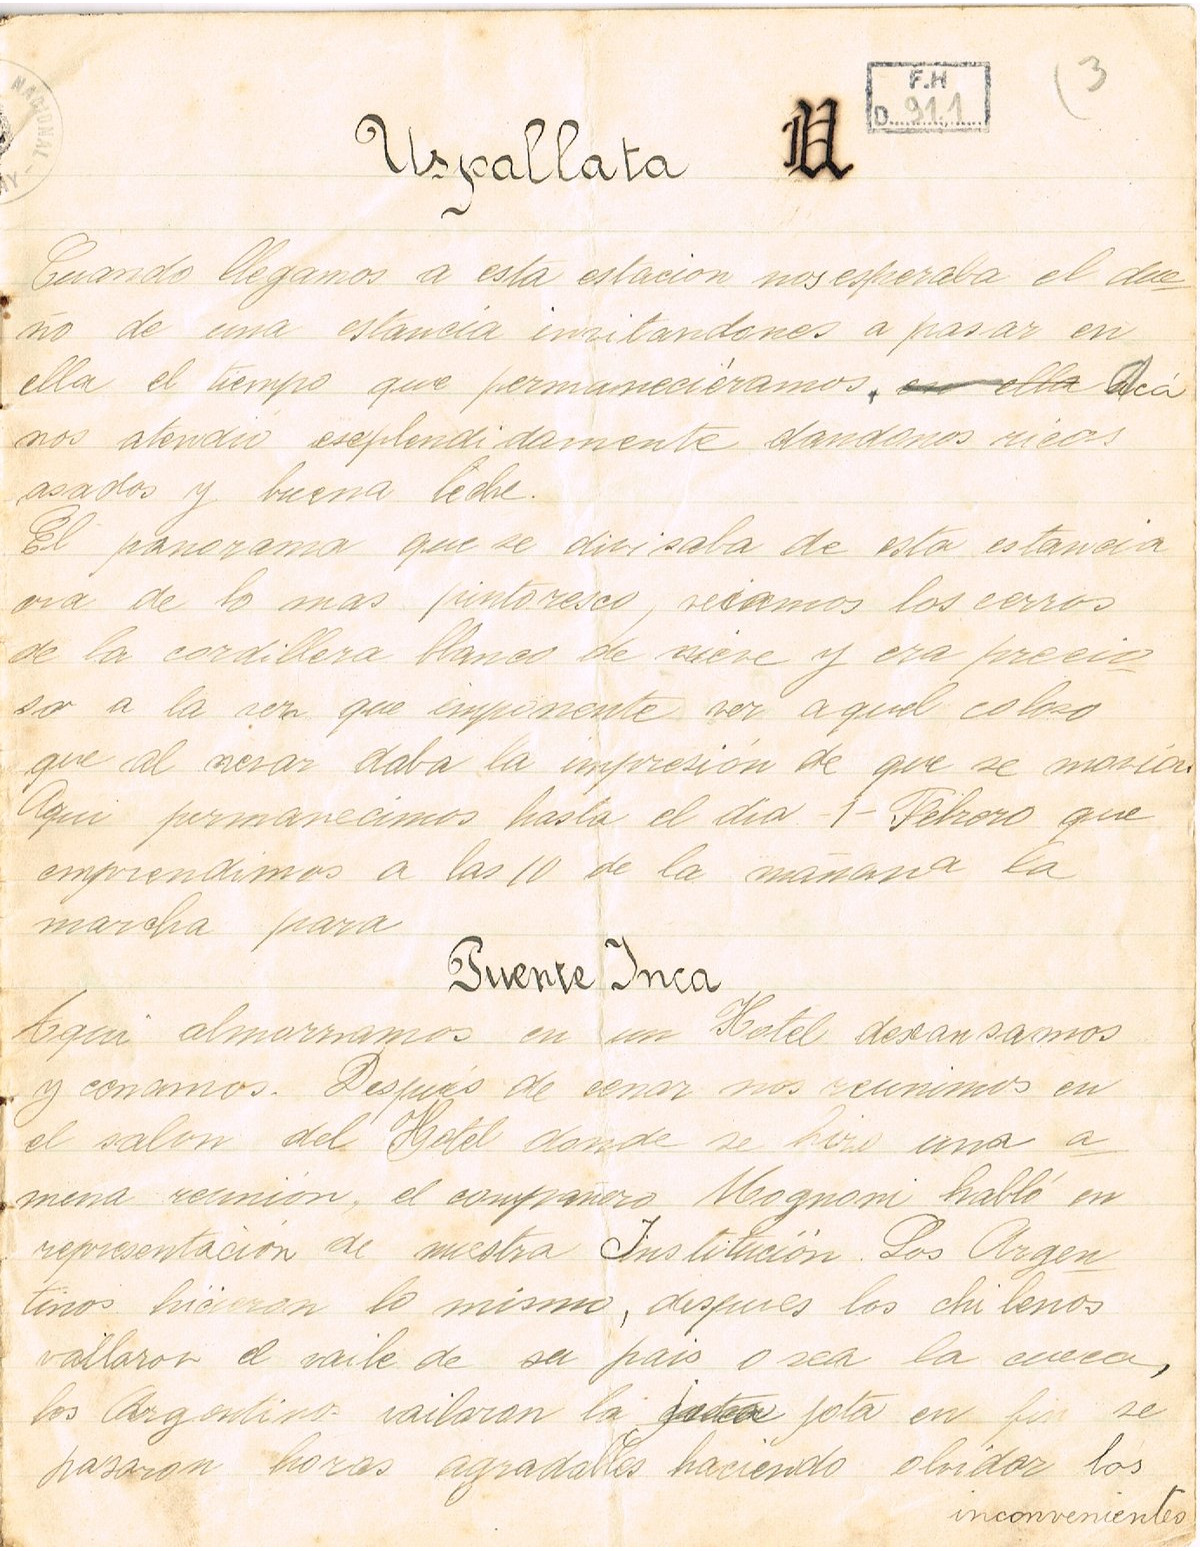 NACIONAL
F.H
D. 91.1
(3
Uspallata U
Cuando llegamos a esta estacion nos esperaba el due-
ño de una estancia invitandones a pasar en
ella el tiempo que permaneciéramos, en ella Acá
nos atendió esxplendidamente dandonos ricos
asados y buena leche.
El panorama que se divisaba de esta estancia
era de lo mas pintoresco, veiamos los cerros
de la cordillera blanco de nieve y era precio-
so a la vez que imponente ver aquel coloso
que al nevar daba la impresión de que se movia.
Aqui permanecimos hasta el dia -1- Febrero que
emprendimos a las 10 de la mañana la
marcha para
Puente Inca
Aqui almorzamos en un Hotel descansamos
y cenamos. Después de cenar nos reunimos en
el salon del Hotel donde se hizo una a-
mena reunión, el compañero Mognoni habló en
representación de nuestra Institución. Los Argen-
tinos hicieron lo mismo, despues los chilenos
vailaron el vaile de su pais o sea la cueca,
los Argentinos vailaron la jota en fin se
pasaron horas agradables haciendo olvidar los
inconvenientes